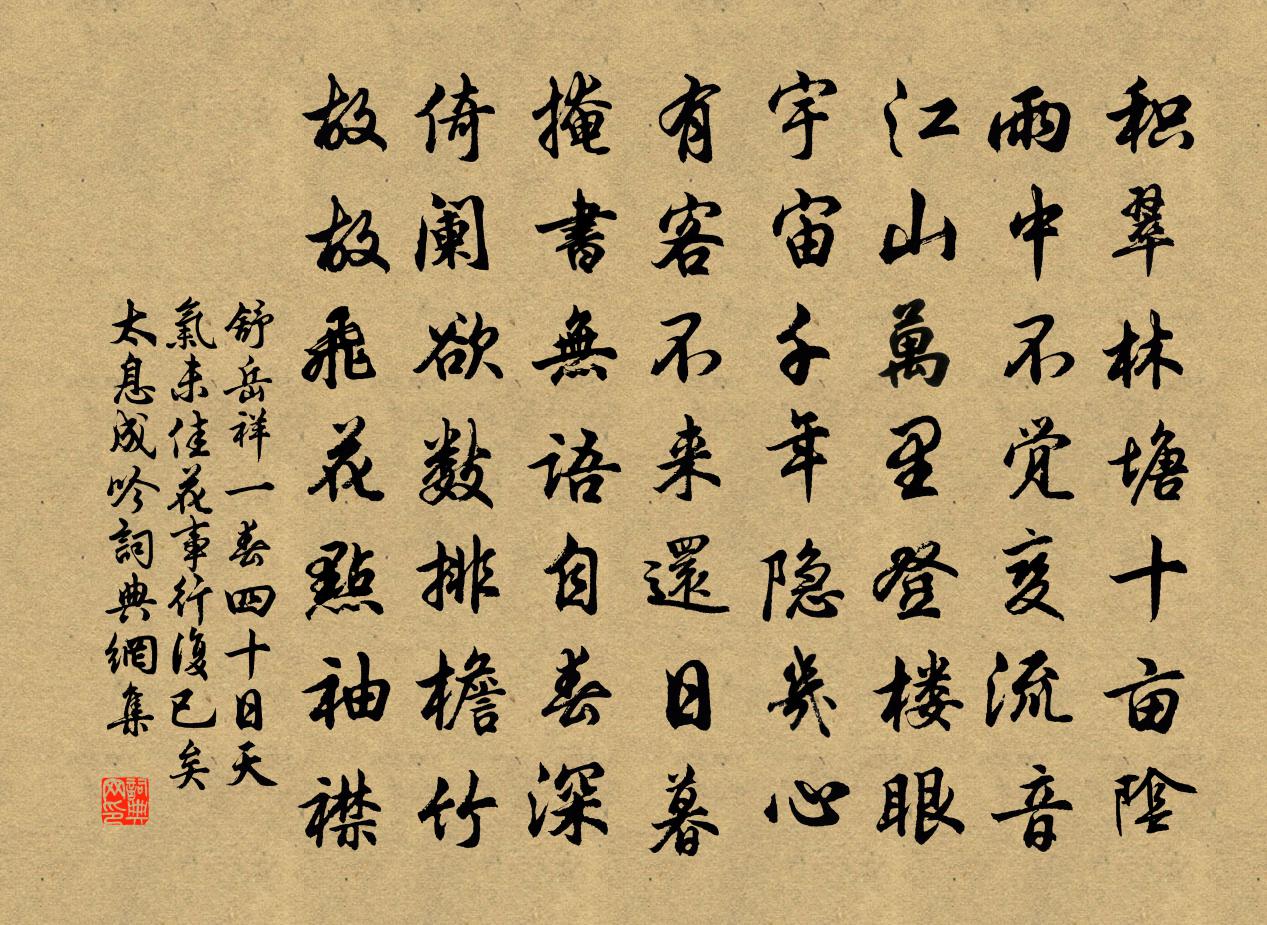 积翠林塘十亩陰
雨中不觉变流音
江山萬里登楼眼
宇宙千年隐幾心
有客不来還日暮
掩書無語自春深
倚阑欲数排檐竹
故故飛花點袖襟
舒岳祥一春四十日天
氣未佳花事行復已矣
太息成吟詞典網集
詞典网印